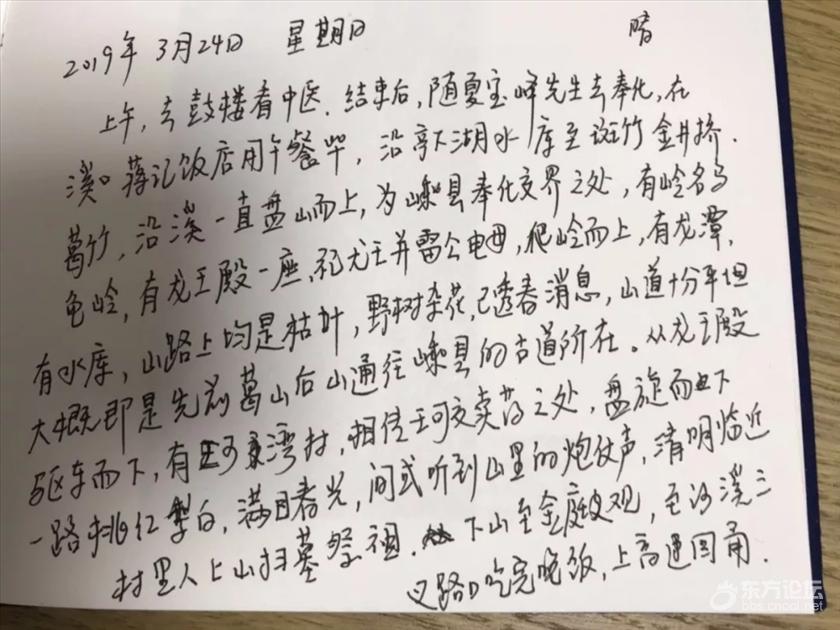 2019年 3月24日 星期日 晴
上午，去鼓楼看中医．结束后，随夏宝峰先生去奉化，在
溪口蒋记饭店用午餐毕，沿亭下湖水库至斑竹金井桥．
葛竹，沿溪一直盘山而上，为嵊县奉化交界之处，有岭名乌
龟岭，有龙王殿一座，祀龙王并雷公电母，爬岭而上，有龙潭，
有水库，山路上均是枯叶，野树杂花，已透春消息，山道十分平坦
大概即是先前葛山后山通往嵊县的古道所在。从龙王殿
驱车而下，有湾村，相传王可交卖药之处，盘旋而下
一路桃红梨白，满目春光，间或听到山里的炮仗声，清明临近
村里人上山扫墓祭祖．下山至金庭观，至沙溪三
叉路口吃完晚饭，上高速回甬．
东方论坛
bbs.cnool.net